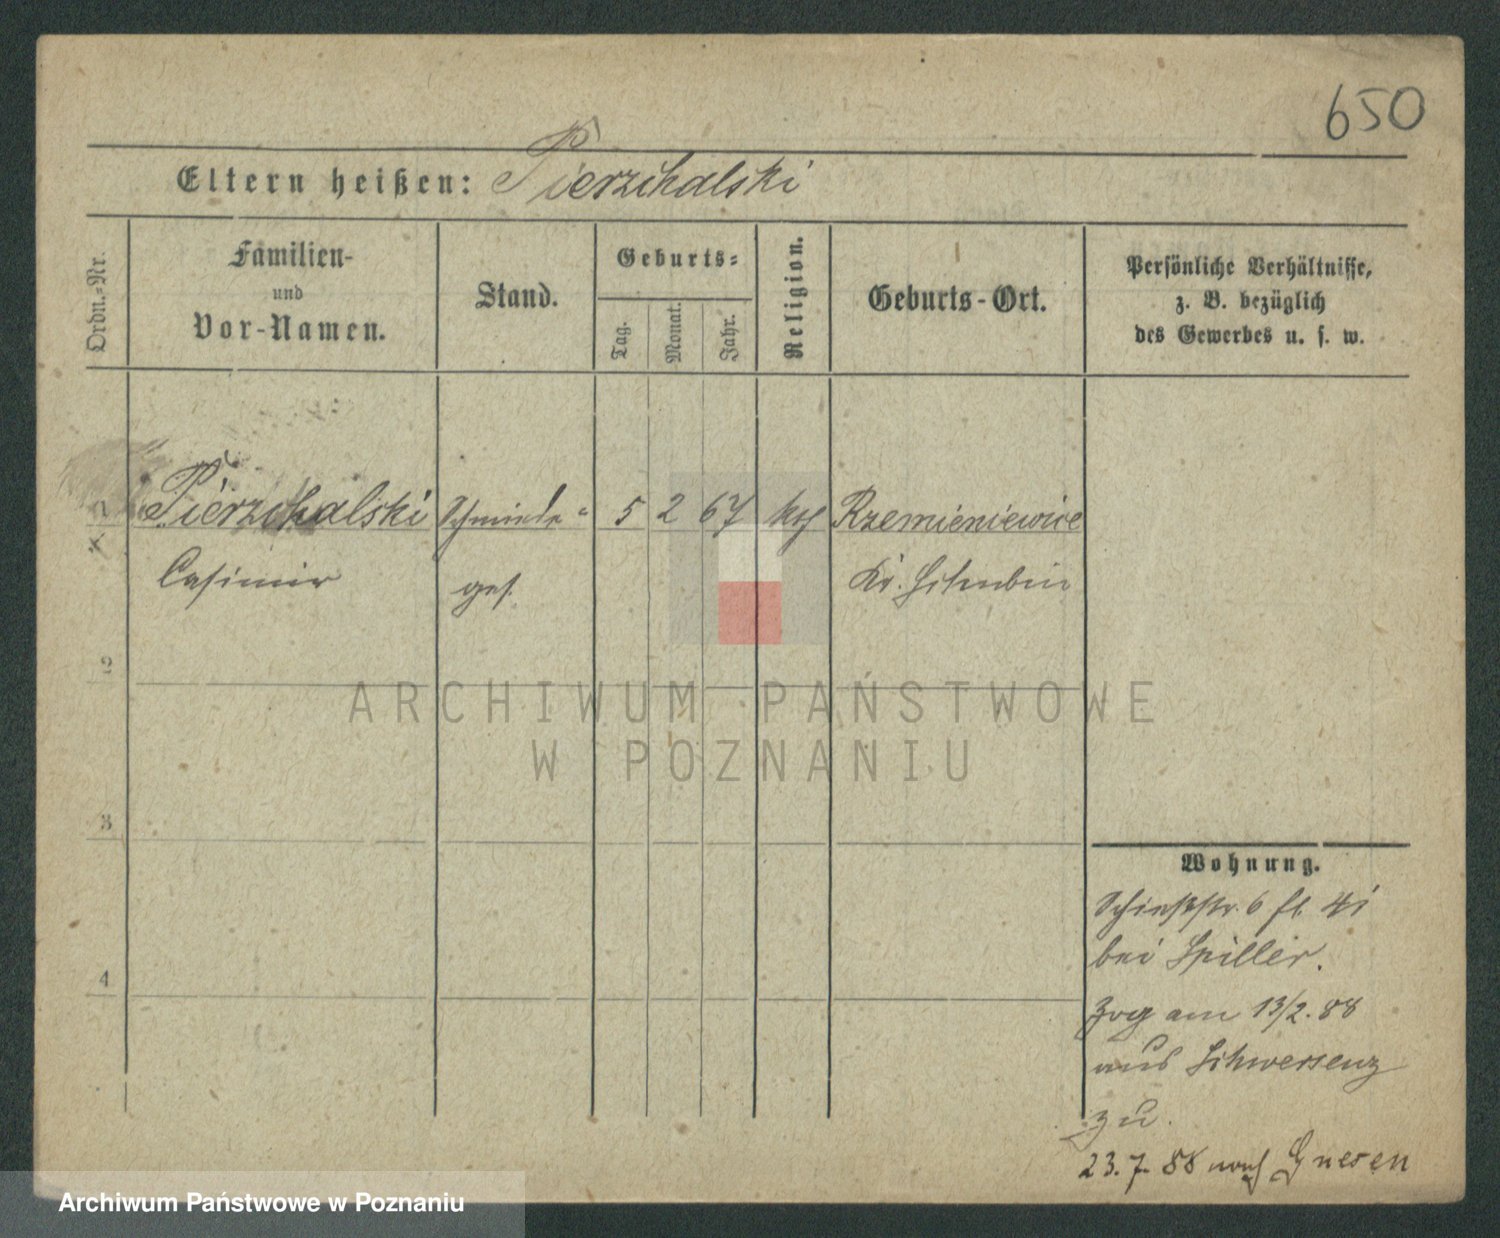 650
Eltern heißen: Pierzchalski
Ordn.-Nr.
Familien-
und
Vor-Namen.
Stand.
Geburts-
Tag.
Monat.
Jahr.
Religion.
Geburts-Ort.
Persönliche Verhältnisse,
z. B. bezüglich
des Gewerbes u. s. w.
1 Pierzchalski Schmiede- 5 2 67 kth Rzemieniewice
Casimir ges. Kr. Schubin
2
ARCHIWUM PAŃSTWOWE
W POZNANIU
3
4
Wohnung.
Schießstr. 6
bei Spiller.
Zog am 13/2. 88
aus Schwersenz
zu.
23. 7. 88 nach Gnesen
Archiwum Państwowe w Poznaniu